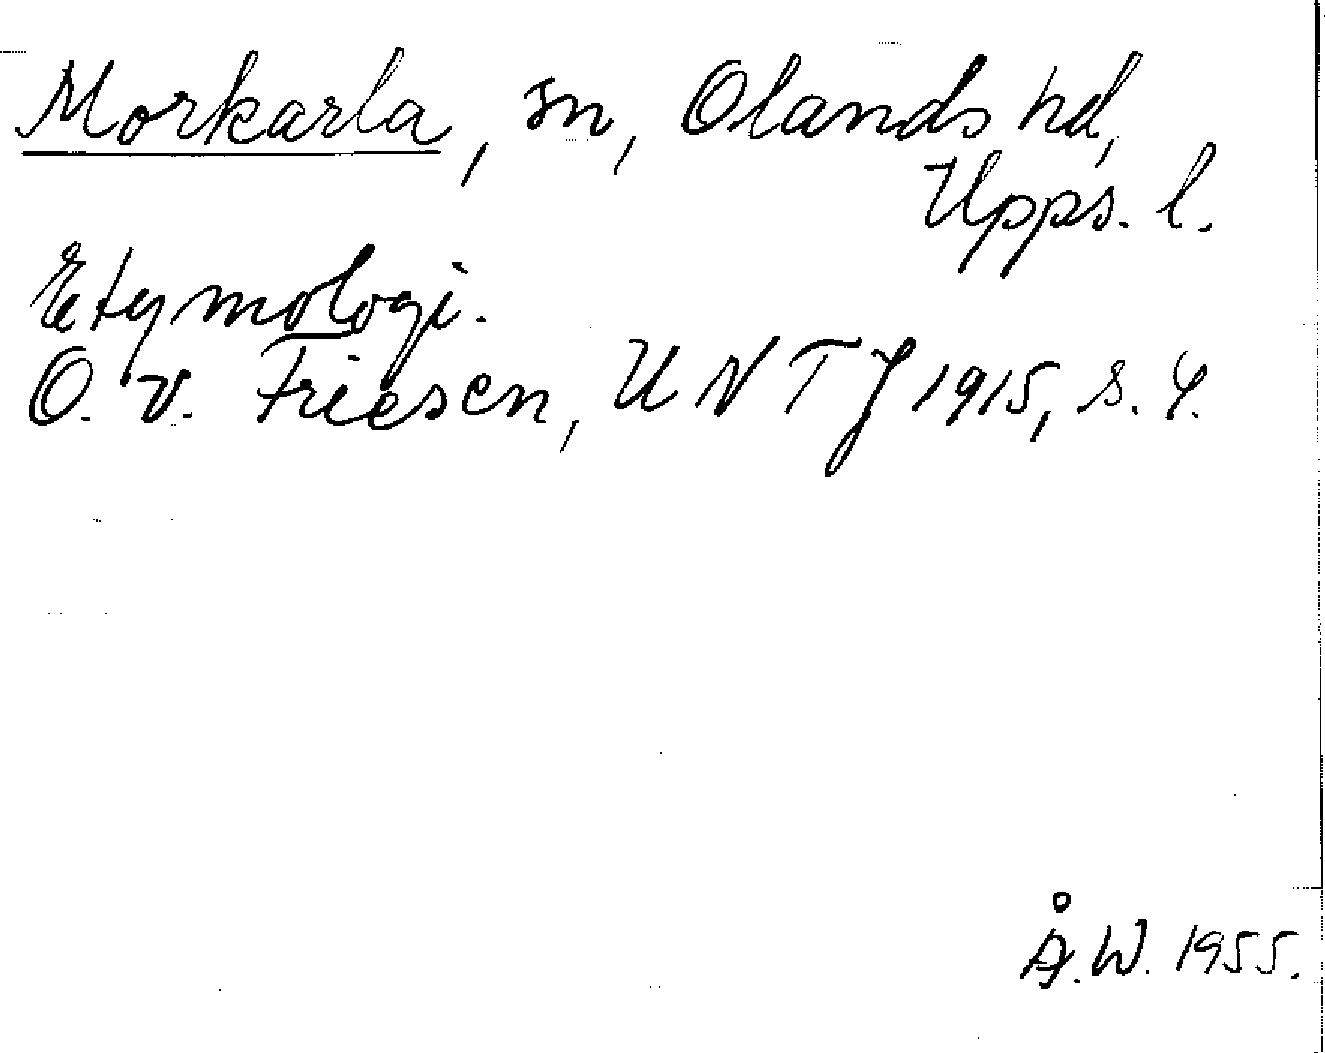 Morkarla, sn, Olands hd,
Upps. l.
Etymologi.
O. v. Friesen, UNTJ 1915, s. 4.
Å.W. 1955.